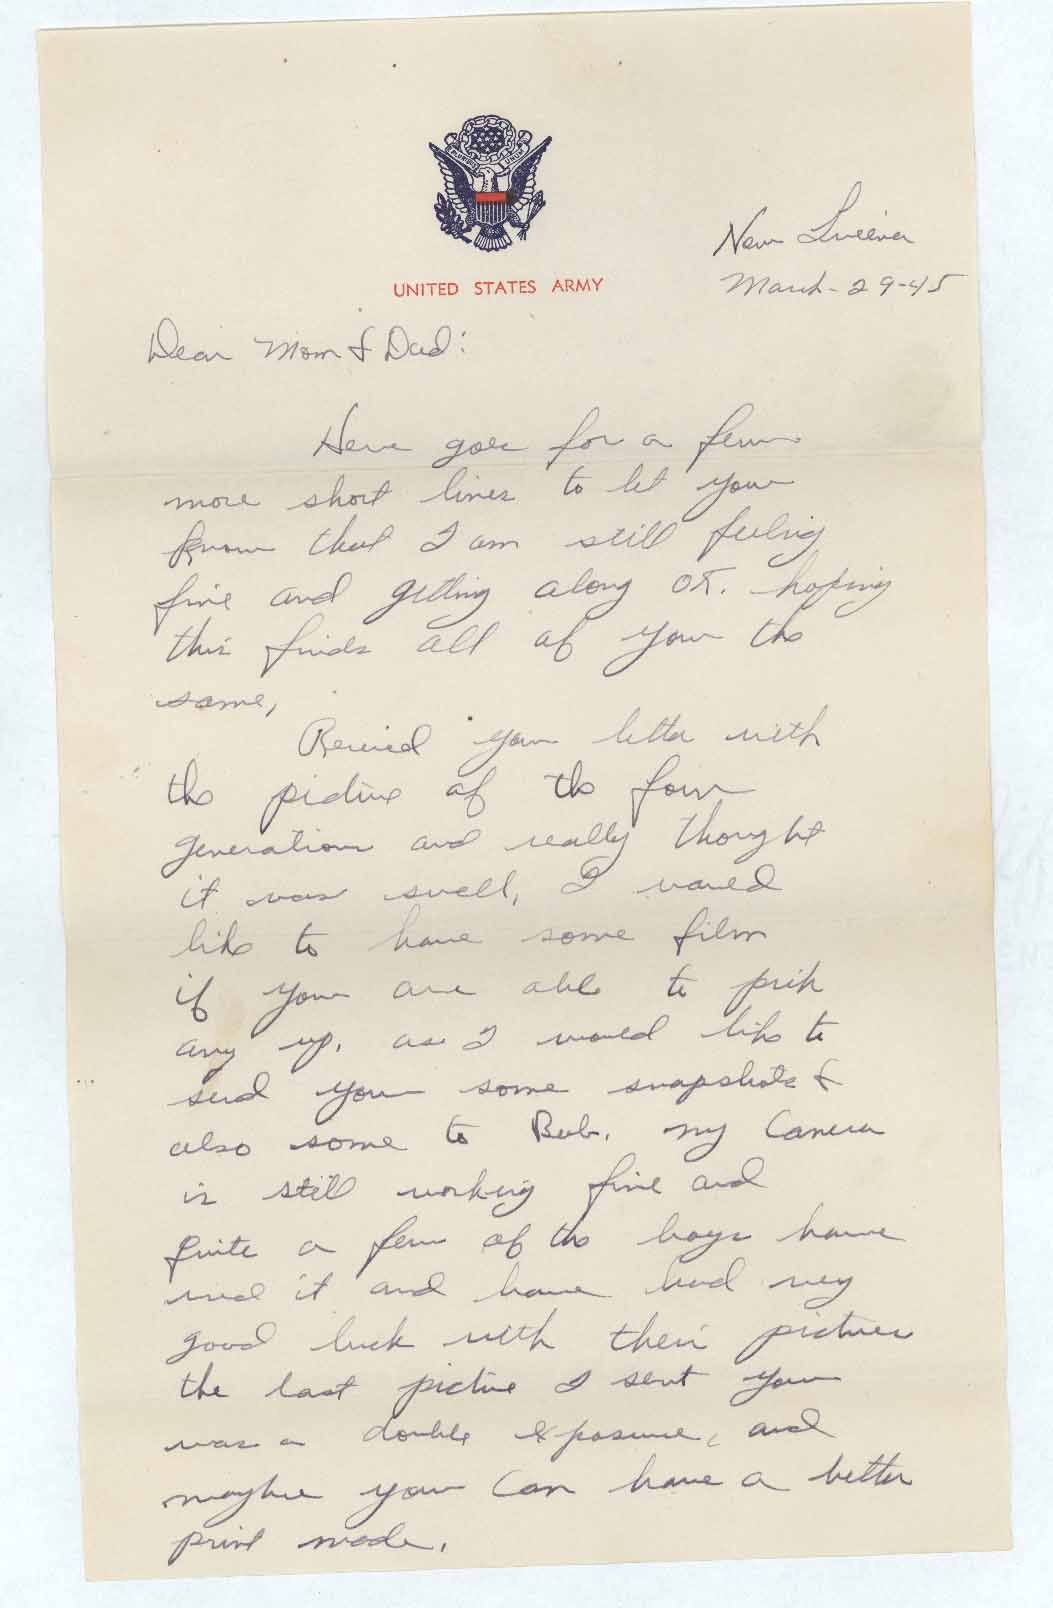 E PLURIBUS UNUM
UNITED STATES ARMY
New Guinea
March-29-45
Dear Mom & Dad:
Here goes for a few
more short lines to let you
know that I am still feeling
fine and getting along OK. hoping
this finds all of you the
same,
Received your letter with
the picture of the four
generations and really thought
it was swell, I would
like to have some film
if you are able to pick
any up, as I would like to
send you some snapshots &
also some to Bub, my Camera
is still working fine and
quite a few of the boys have
used it and have had very
good luck with their pictures
the last picture I sent you
was a double exposure, and
maybe you can have a better
print made.